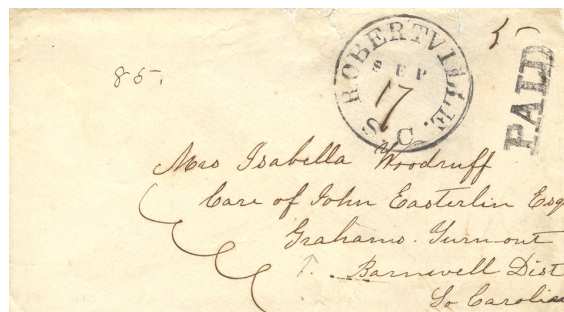 5
85.
ROBERTVILLE
SEP
17
S.C.
PAID
Mrs Isabella Woodruff
Care of John Easterlin Esq
Grahams. Turnout
Barnwell Dist
So Carolina